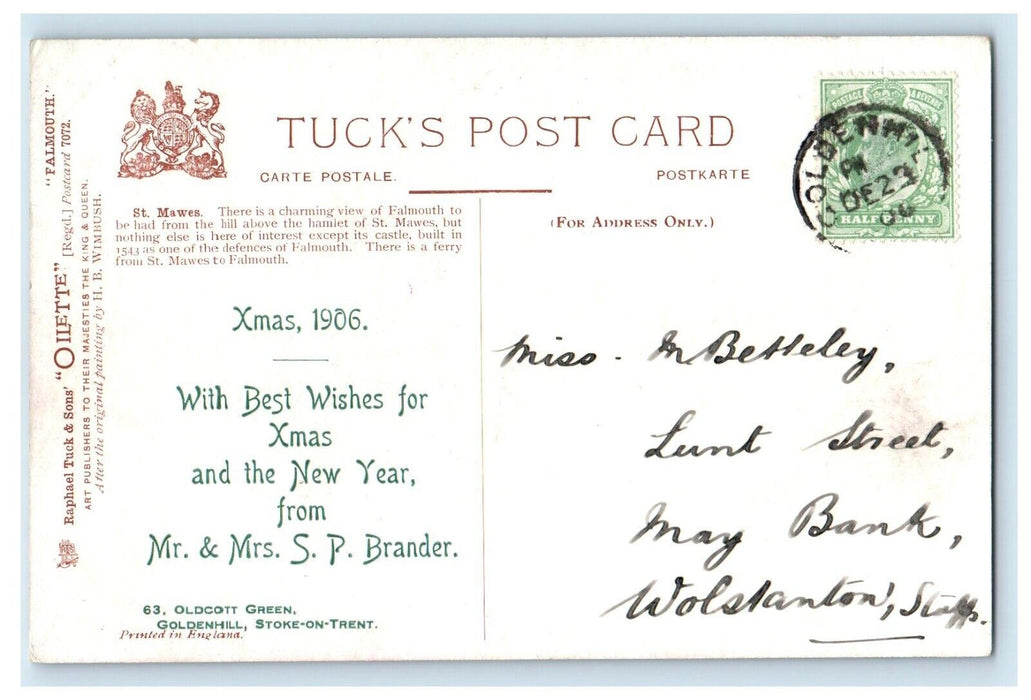 Raphael Tuck & Sons' "OILETTE" [Regd.] Postcard 7072. "FALMOUTH."
ART PUBLISHERS TO THEIR MAJESTIES THE KING & QUEEN.
After the original painting by H. B. WIMBUSH.
TUCK'S POST CARD
CARTE POSTALE.
POSTKARTE
(FOR ADDRESS ONLY.)
St. Mawes. There is a charming view of Falmouth to
be had from the hill above the hamlet of St. Mawes, but
nothing else is here of interest except its castle, built in
1543 as one of the defences of Falmouth. There is a ferry
from St. Mawes to Falmouth.
POSTAGE & REVENUE
HALFPENNY
GOLDENHILL
PM
DE 23
Xmas, 1906.
With Best Wishes for
Xmas
and the New Year,
from
Mr. & Mrs. S. P. Brander.
63, OLDCOTT GREEN,
GOLDENHILL, STOKE-ON-TRENT.
Printed in England.
Miss. M Betteley,
Lunt Street,
May Bank,
Wolstanton, Staffs.